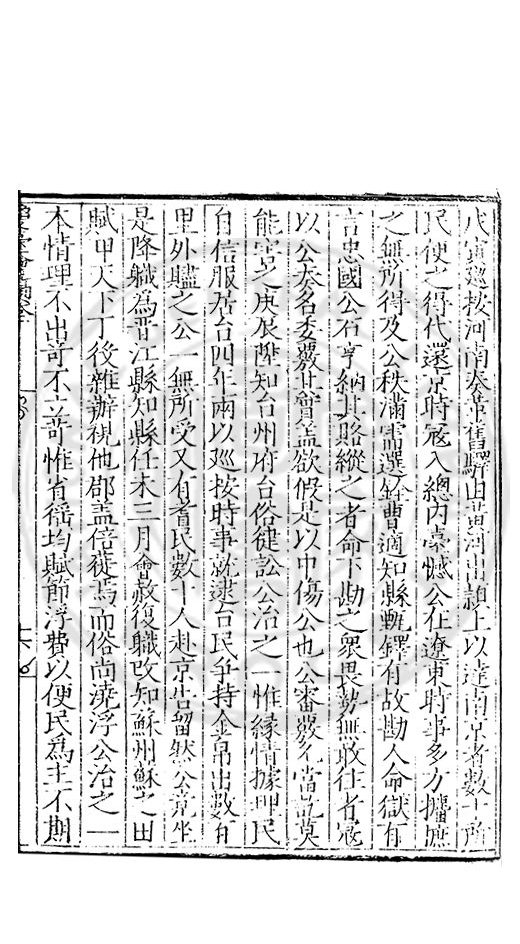 戊寅廵按河南奏革舊驛由黄河出潁上以達南京者數十所
民便之得代還京時冦入總内豪憾公在遼東時事多方攟摭
之無所得及公秩滿需選銓曹適知縣甄鐸有故勘人命獄有
言忠國公石亨納其賂縱之者命下勘之衆畏勢無敢往者冦
以公奏名委覈其曾盖欲假是以中傷公也公審覈允當訖莫
能害之庚辰陞知台州府台俗健訟公治之一惟緣情據理民
自信服居台四年兩以廵按時事就逮台民爭持金帛出數百
里外贐之公一無所受又有耆民數十人赴京告留然公竟坐
是降職為晋江縣知縣任未三月會赦復職改知蘇州蘇之田
賦甲天下丁後雜辦視他郡盖倍蓰焉而俗尚澆浮公治之一
本情理不出竒不立苛惟省徭均賦節浮費以便民為主不期
十六